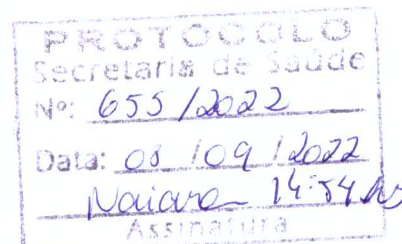 PROTOCOLO
Secretaria de Saúde
Nº: 655/2022
Data: 08/09/2022
Naiara 14:54 hs
Assinatura